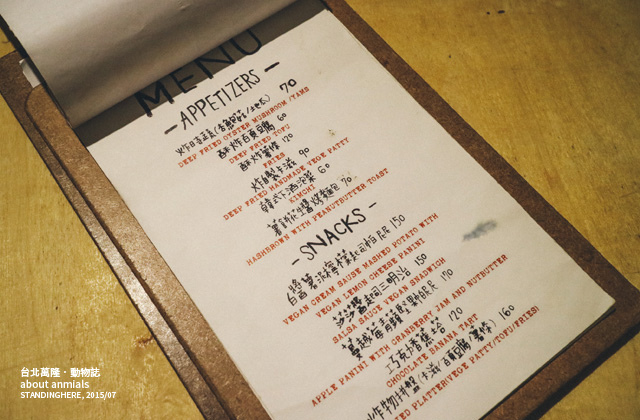 MENU
- APPETIZERS -
70
DEEP FRIED OYSTER MUSHROOM /YAMS
酥炸百頁豆腐 60
DEEP FRIED TOFU
酥炸薯條 170
FRIES
炸自製卡滋 90
DEEP FRIED HANDMADE VEGE PATTY
韓式下酒泡菜 60
KIMCHI
薯餅花生醬烤麵包 70
HASHBROWN WITH PEANUTBUTTER TOAST
- SNACKS -
150
VEGAN CREAM SAUSE MASHED POTATO WITH
VEGAN LEMON CHEESE PANINI
莎莎醬起司三明治 150
SALSA SAUCE VEGAN SNADWICH
蔓越莓青蘋果 170
APPLE PANINI WITH CRANBERRY JAM AND NUTBUTTER
巧克力塔 120
CHOCOLATE BANANA TART
炸物拼盤(卡滋/百頁豆腐/薯條) 160
ED PLATTER(VEGE PATTY/TOFU/FRIES)
台北萬隆・動物誌
about anmials
STANDINGHERE, 2015/07